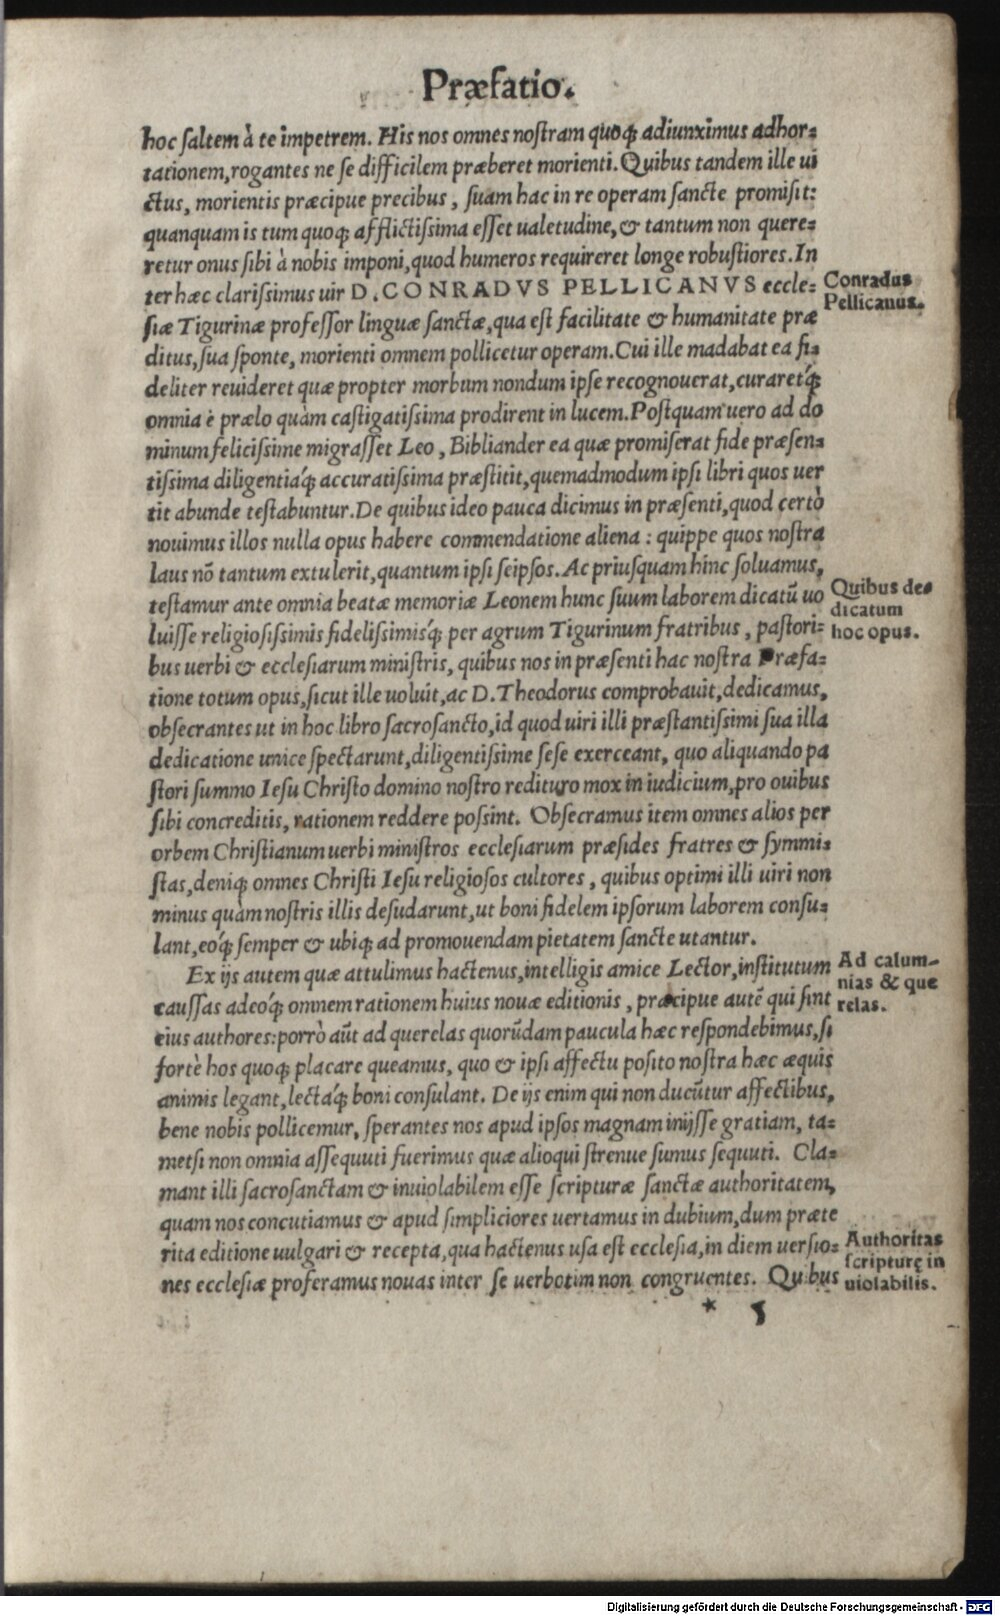 Præfatio.
hoc saltem à te impetrem. His nos omnes nostram quoq; adiunximus adhor=
tationem, rogantes ne se difficilem præberet morienti. Quibus tandem ille ui
ctus, morientis præcipue precibus, suam hac in re operam sancte promisit:
quanquam is tum quoq; afflictissima esset ualetudine, & tantum non quere=
retur onus sibi à nobis imponi, quod humeros requireret longe robustiores. In
ter hæc clarissimus uir D. CONRADVS PELLICANVS eccle=
Conradus
Pellicanus.
siæ Tigurinæ professor linguæ sanctæ, qua est facilitate & humanitate præ
ditus, sua sponte, morienti omnem pollicetur operam. Cui ille madabat ea fi=
deliter reuideret quæ propter morbum nondum ipse recognouerat, curaretq́;
omnia è prælo quàm castigatissima prodirent in lucem. Postquam uero ad do
minum felicissime migrasset Leo, Bibliander ea quæ promiserat fide præsen=
tissima diligentiaq́; accuratissima præstitit, quemadmodum ipsi libri quos uer
tit abunde testabuntur. De quibus ideo pauca dicimus in præsenti, quod certò
nouimus illos nulla opus habere commendatione aliena: quippe quos nostra
laus nō tantum extulerit, quantum ipsi seipsos. Ac priusquam hinc soluamus,
testamur ante omnia beatæ memoriæ Leonem hunc suum laborem dicatū uo
Quibus de=
dicatum
hoc opus.
luisse religiosissimis fidelissimisq́; per agrum Tigurinum fratribus, pastori=
bus uerbi & ecclesiarum ministris, quibus nos in præsenti hac nostra Præfa=
tione totum opus, sicut ille uoluit, ac D. Theodorus comprobauit, dedicamus,
obsecrantes ut in hoc libro sacrosancto, id quod uiri illi præstantissimi sua illa
dedicatione unice spectarunt, diligentissime sese exerceant, quo aliquando pa
stori summo Iesu Christo domino nostro redituro mox in iudicium, pro ouibus
sibi concreditis, rationem reddere possint. Obsecramus item omnes alios per
orbem Christianum uerbi ministros ecclesiarum præsides fratres & symmi=
stas, deniq; omnes Christi Iesu religiosos cultores, quibus optimi illi uiri non
minus quàm nostris illis desudarunt, ut boni fidelem ipsorum laborem consu=
lant, eoq́; semper & ubiq; ad promouendam pietatem sancte utantur.
Ex ijs autem quæ attulimus hactenus, intelligis amice Lector, institutum
Ad calum-
nias & que
relas.
caussas adeoq́; omnem rationem huius nouæ editionis, præcipue autē qui sint
eius authores: porrò aūt ad querelas quorūdam paucula hæc respondebimus, si
fortè hos quoq; placare queamus, quo & ipsi affectu posito nostra hæc æquis
animis legant, lectaq́; boni consulant. De ijs enim qui non ducūtur affectibus,
bene nobis pollicemur, sperantes nos apud ipsos magnam inijsse gratiam, ta=
metsi non omnia assequuti fuerimus quæ alioqui strenue sumus sequuti. Cla=
mant illi sacrosanctam & inuiolabilem esse scripturæ sanctæ authoritatem,
quam nos concutiamus & apud simpliciores uertamus in dubium, dum præte
rita editione uulgari & recepta, qua hactenus usa est ecclesia, in diem uersio=
Authoritas
scripturę in
uiolabilis.
nes ecclesiæ proferamus nouas inter se uerbotim non congruentes. Quibus
* 5
Digitalisierung gefördert durch die Deutsche Forschungsgemeinschaft - DFG